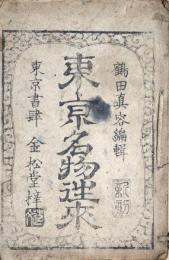 鶴田真容編輯
東京名物往来
東京書肆 金松堂梓